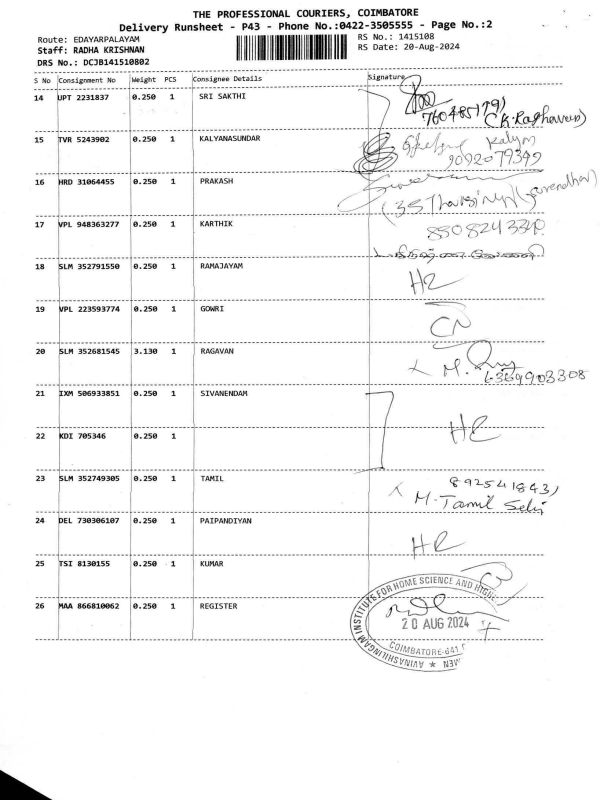 THE PROFESSIONAL COURIERS, COIMBATORE
Delivery Runsheet - P43 - Phone No.:0422-3505555 - Page No.:2
Route: EDAYARPALAYAM
RS No.: 1415108
Staff: RADHA KRISHNAN
RS Date: 20-Aug-2024
DRS No.: DCJB141510802
S No Consignment No Weight PCS Consignee Details Signature
14 UPT 2231837 0.250 1 SRI SAKTHI
15 TVR 5243902 0.250 1 KALYANASUNDAR
9092079349
16 HRD 31064455 0.250 1 PRAKASH
17 VPL 948363277 0.250 1 KARTHIK
18 SLM 352791550 0.250 1 RAMAJAYAM
19 VPL 223593774 0.250 1 GOWRI
20 SLM 352681545 3.130 1 RAGAVAN
21 IXM 506933851 0.250 1 SIVANENDAM
22 KDI 705346 0.250 1
23 SLM 352749305 0.250 1 TAMIL
M. Tamil Selvi
24 DEL 730306107 0.250 1 PAIPANDIYAN
25 TSI 8130155 0.250 1 KUMAR
26 MAA 866810062 0.250 1 REGISTER
AVINASHILINGAM INSTITUTE FOR HOME SCIENCE AND
20 AUG 2024
COIMBATORE-641